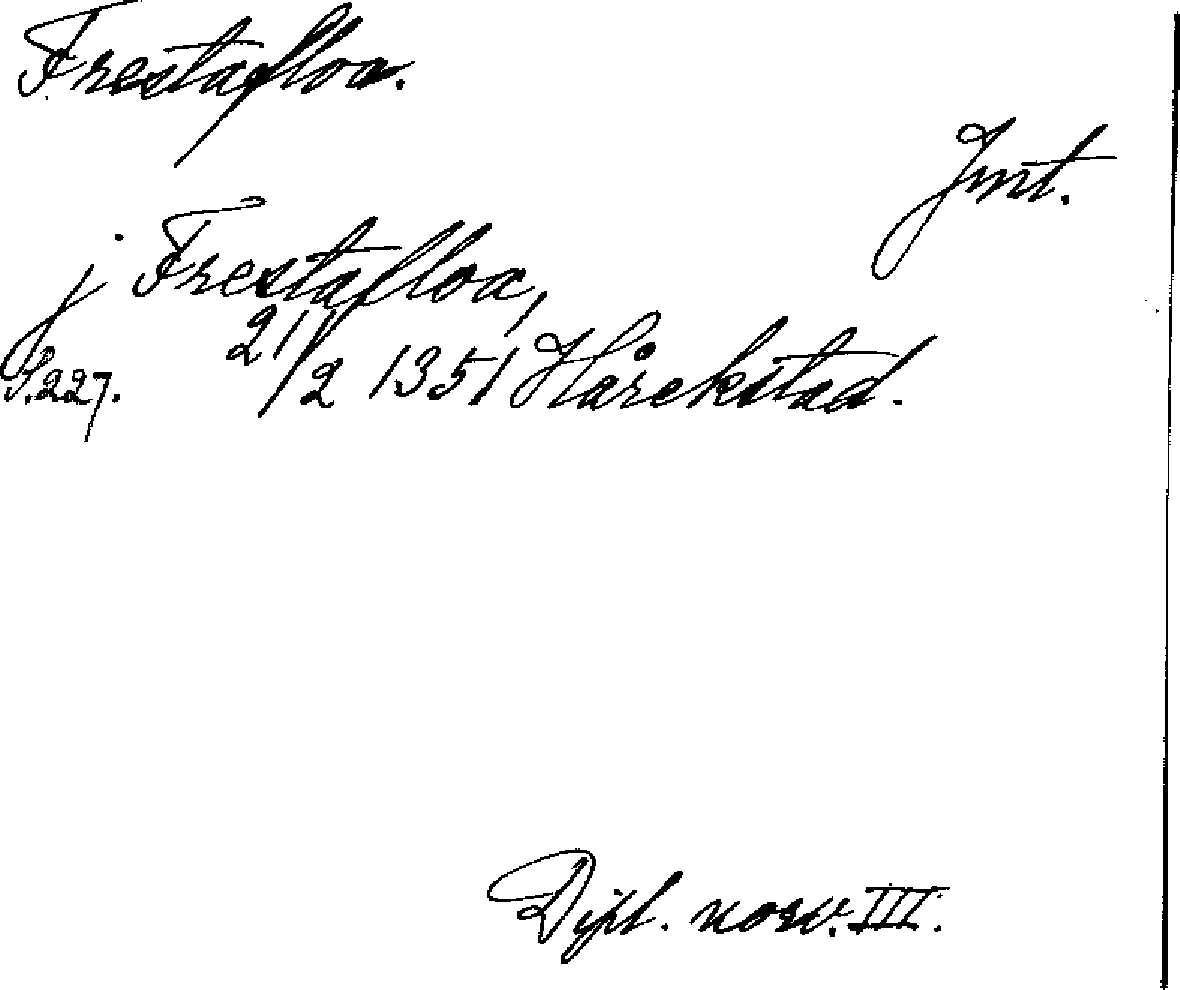 Frestafloa.
Jmt.
j Frestafloa,
S. 227. 21/2 1351 Hårekstad.
Dipl. norv. III.